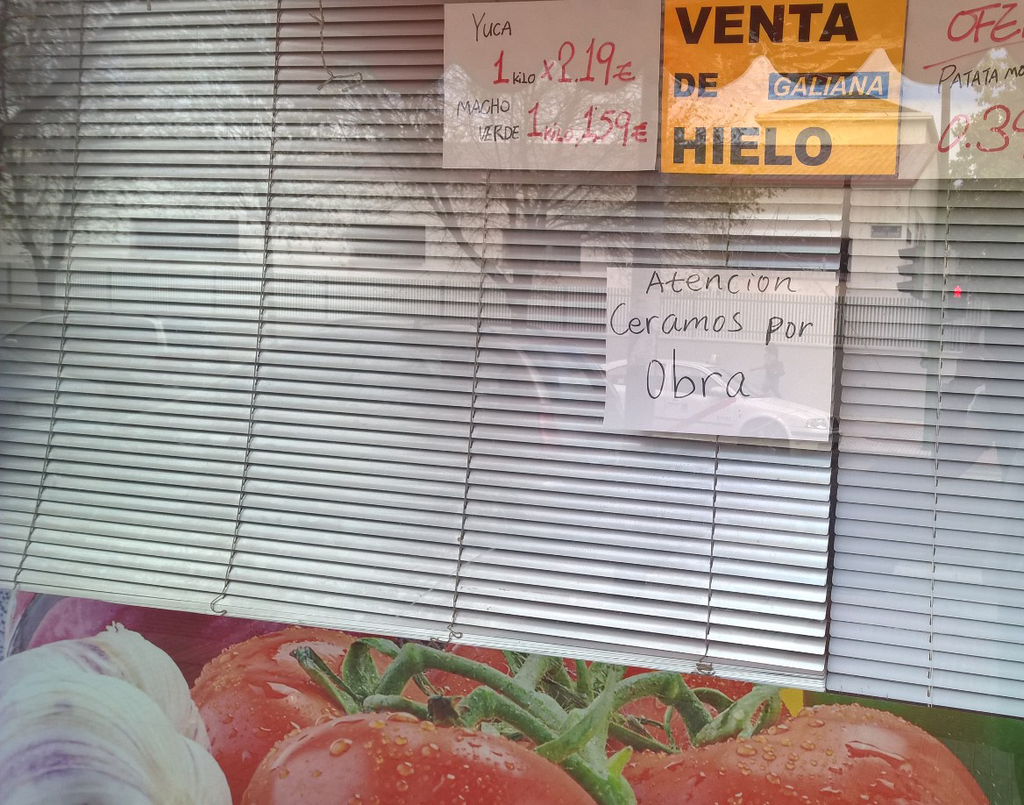 YUCA
1 KILO x 2.19€
MACHO
VERDE 1 KILO 1,59€
VENTA
DE GALIANA
HIELO
PATATA
Atencion
Ceramos por
Obra